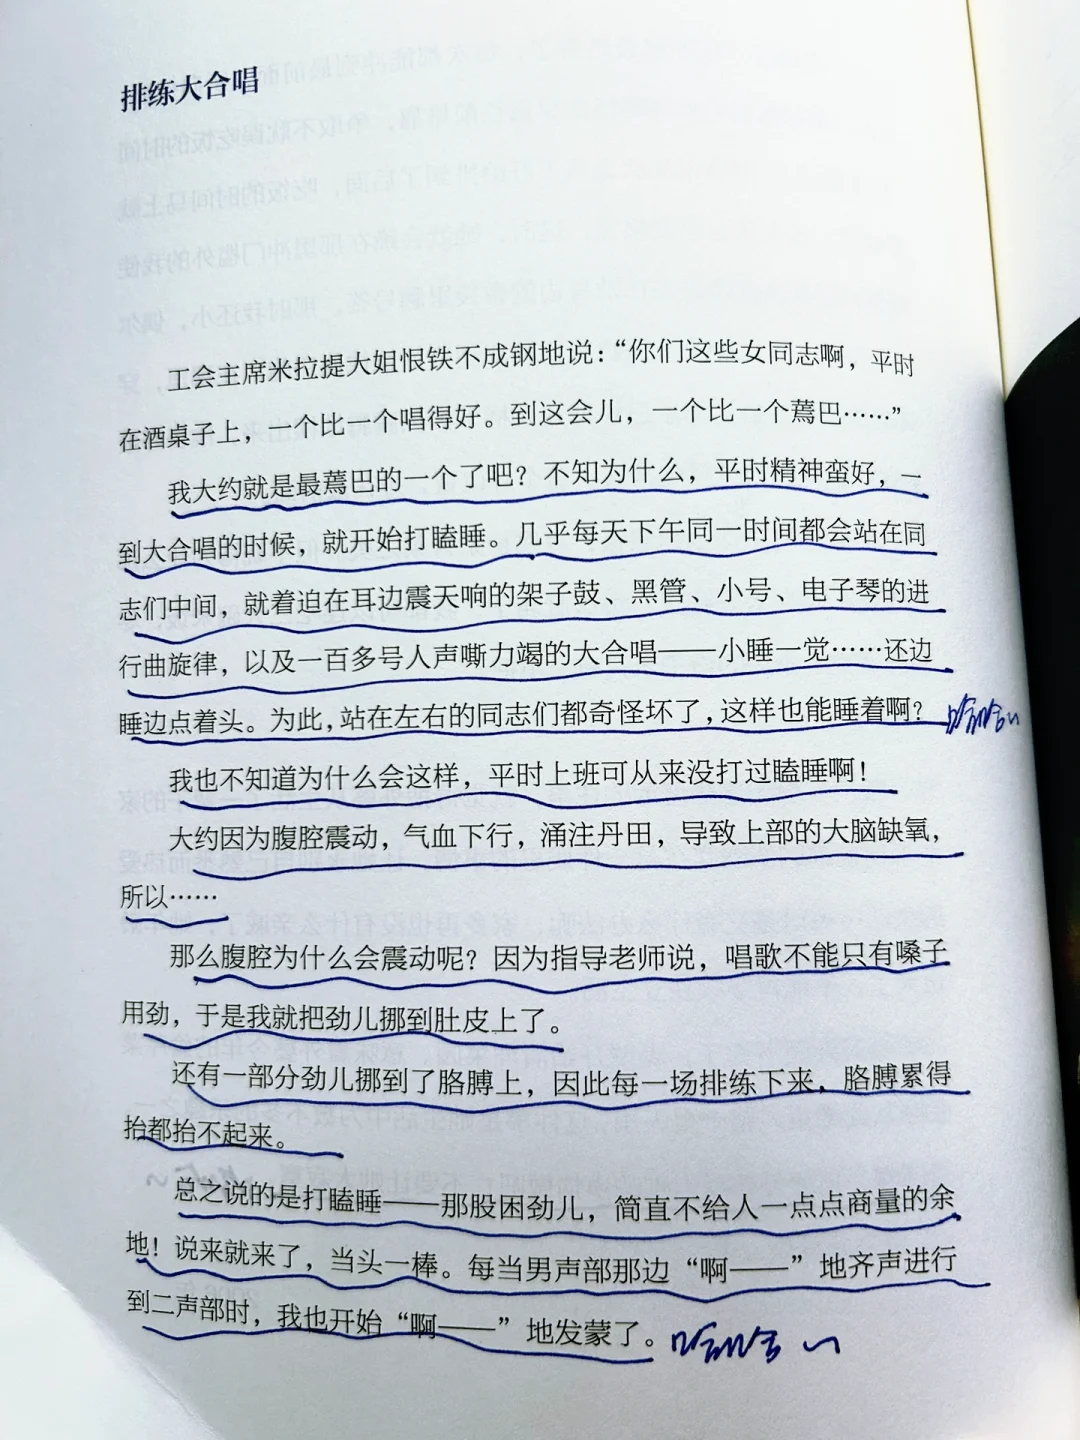 排练大合唱
工会主席米拉提大姐恨铁不成钢地说：“你们这些女同志啊，平时
在酒桌子上，一个比一个唱得好。到这会儿，一个比一个蔫巴……”
我大约就是最蔫巴的一个了吧？不知为什么，平时精神蛮好，一
到大合唱的时候，就开始打瞌睡。几乎每天下午同一时间都会站在同
志们中间，就着迫在耳边震天响的架子鼓、黑管、小号、电子琴的进
行曲旋律，以及一百多号人声嘶力竭的大合唱——小睡一觉……还边
睡边点着头。为此，站在左右的同志们都奇怪坏了，这样也能睡着啊？
哈哈
我也不知道为什么会这样，平时上班可从来没打过瞌睡啊！
大约因为腹腔震动，气血下行，涌注丹田，导致上部的大脑缺氧，
所以……
那么腹腔为什么会震动呢？因为指导老师说，唱歌不能只有嗓子
用劲，于是我就把劲儿挪到肚皮上了。
还有一部分劲儿挪到了胳膊上，因此每一场排练下来，胳膊累得
抬都抬不起来。
总之说的是打瞌睡——那股困劲儿，简直不给人一点点商量的余
地！说来就来了，当头一棒。每当男声部那边“啊——”地齐声进行
到二声部时，我也开始“啊——”地发蒙了。
哈哈哈